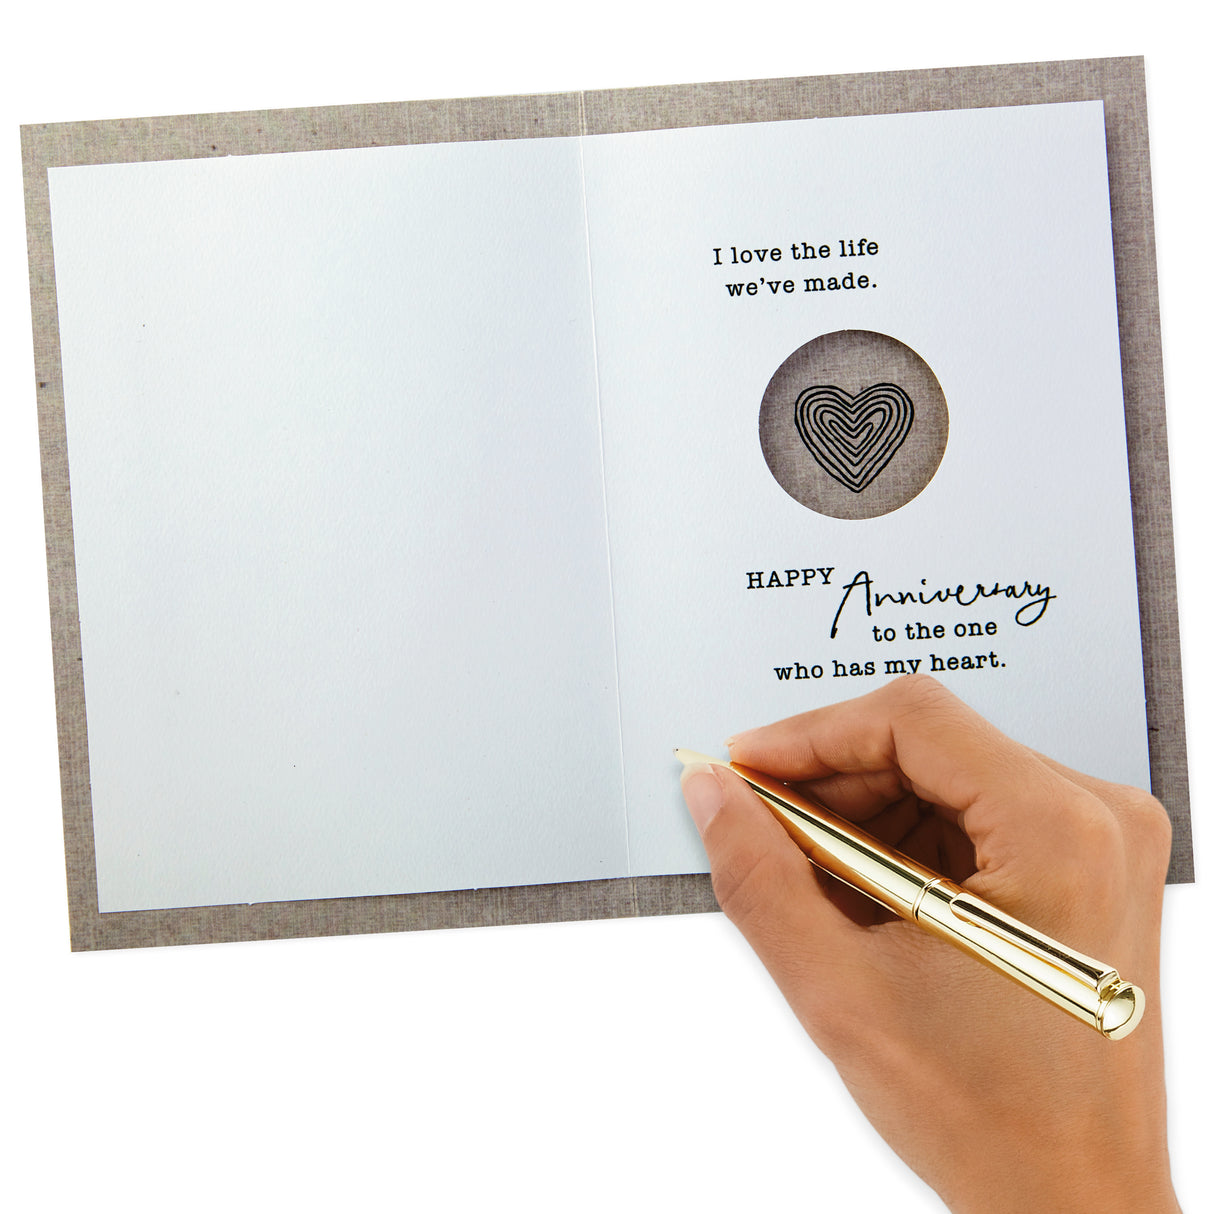 I love the life
we've made.
HAPPY Anniversary
to the one
who has my heart.